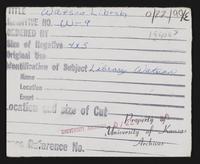 TITLE Watson Library 0/22/99/c
NEGATIVE NO. W-9
ORDERED BY
Size of Negative 4x5
Original Use
Identification of Subject Library Watson
Name
Location
Event
Location and Size of Cut
Property of
University of Kansas
Archives
Reference No.